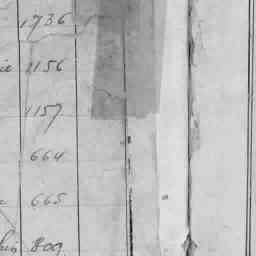 1736
1156
1157
664
665
809